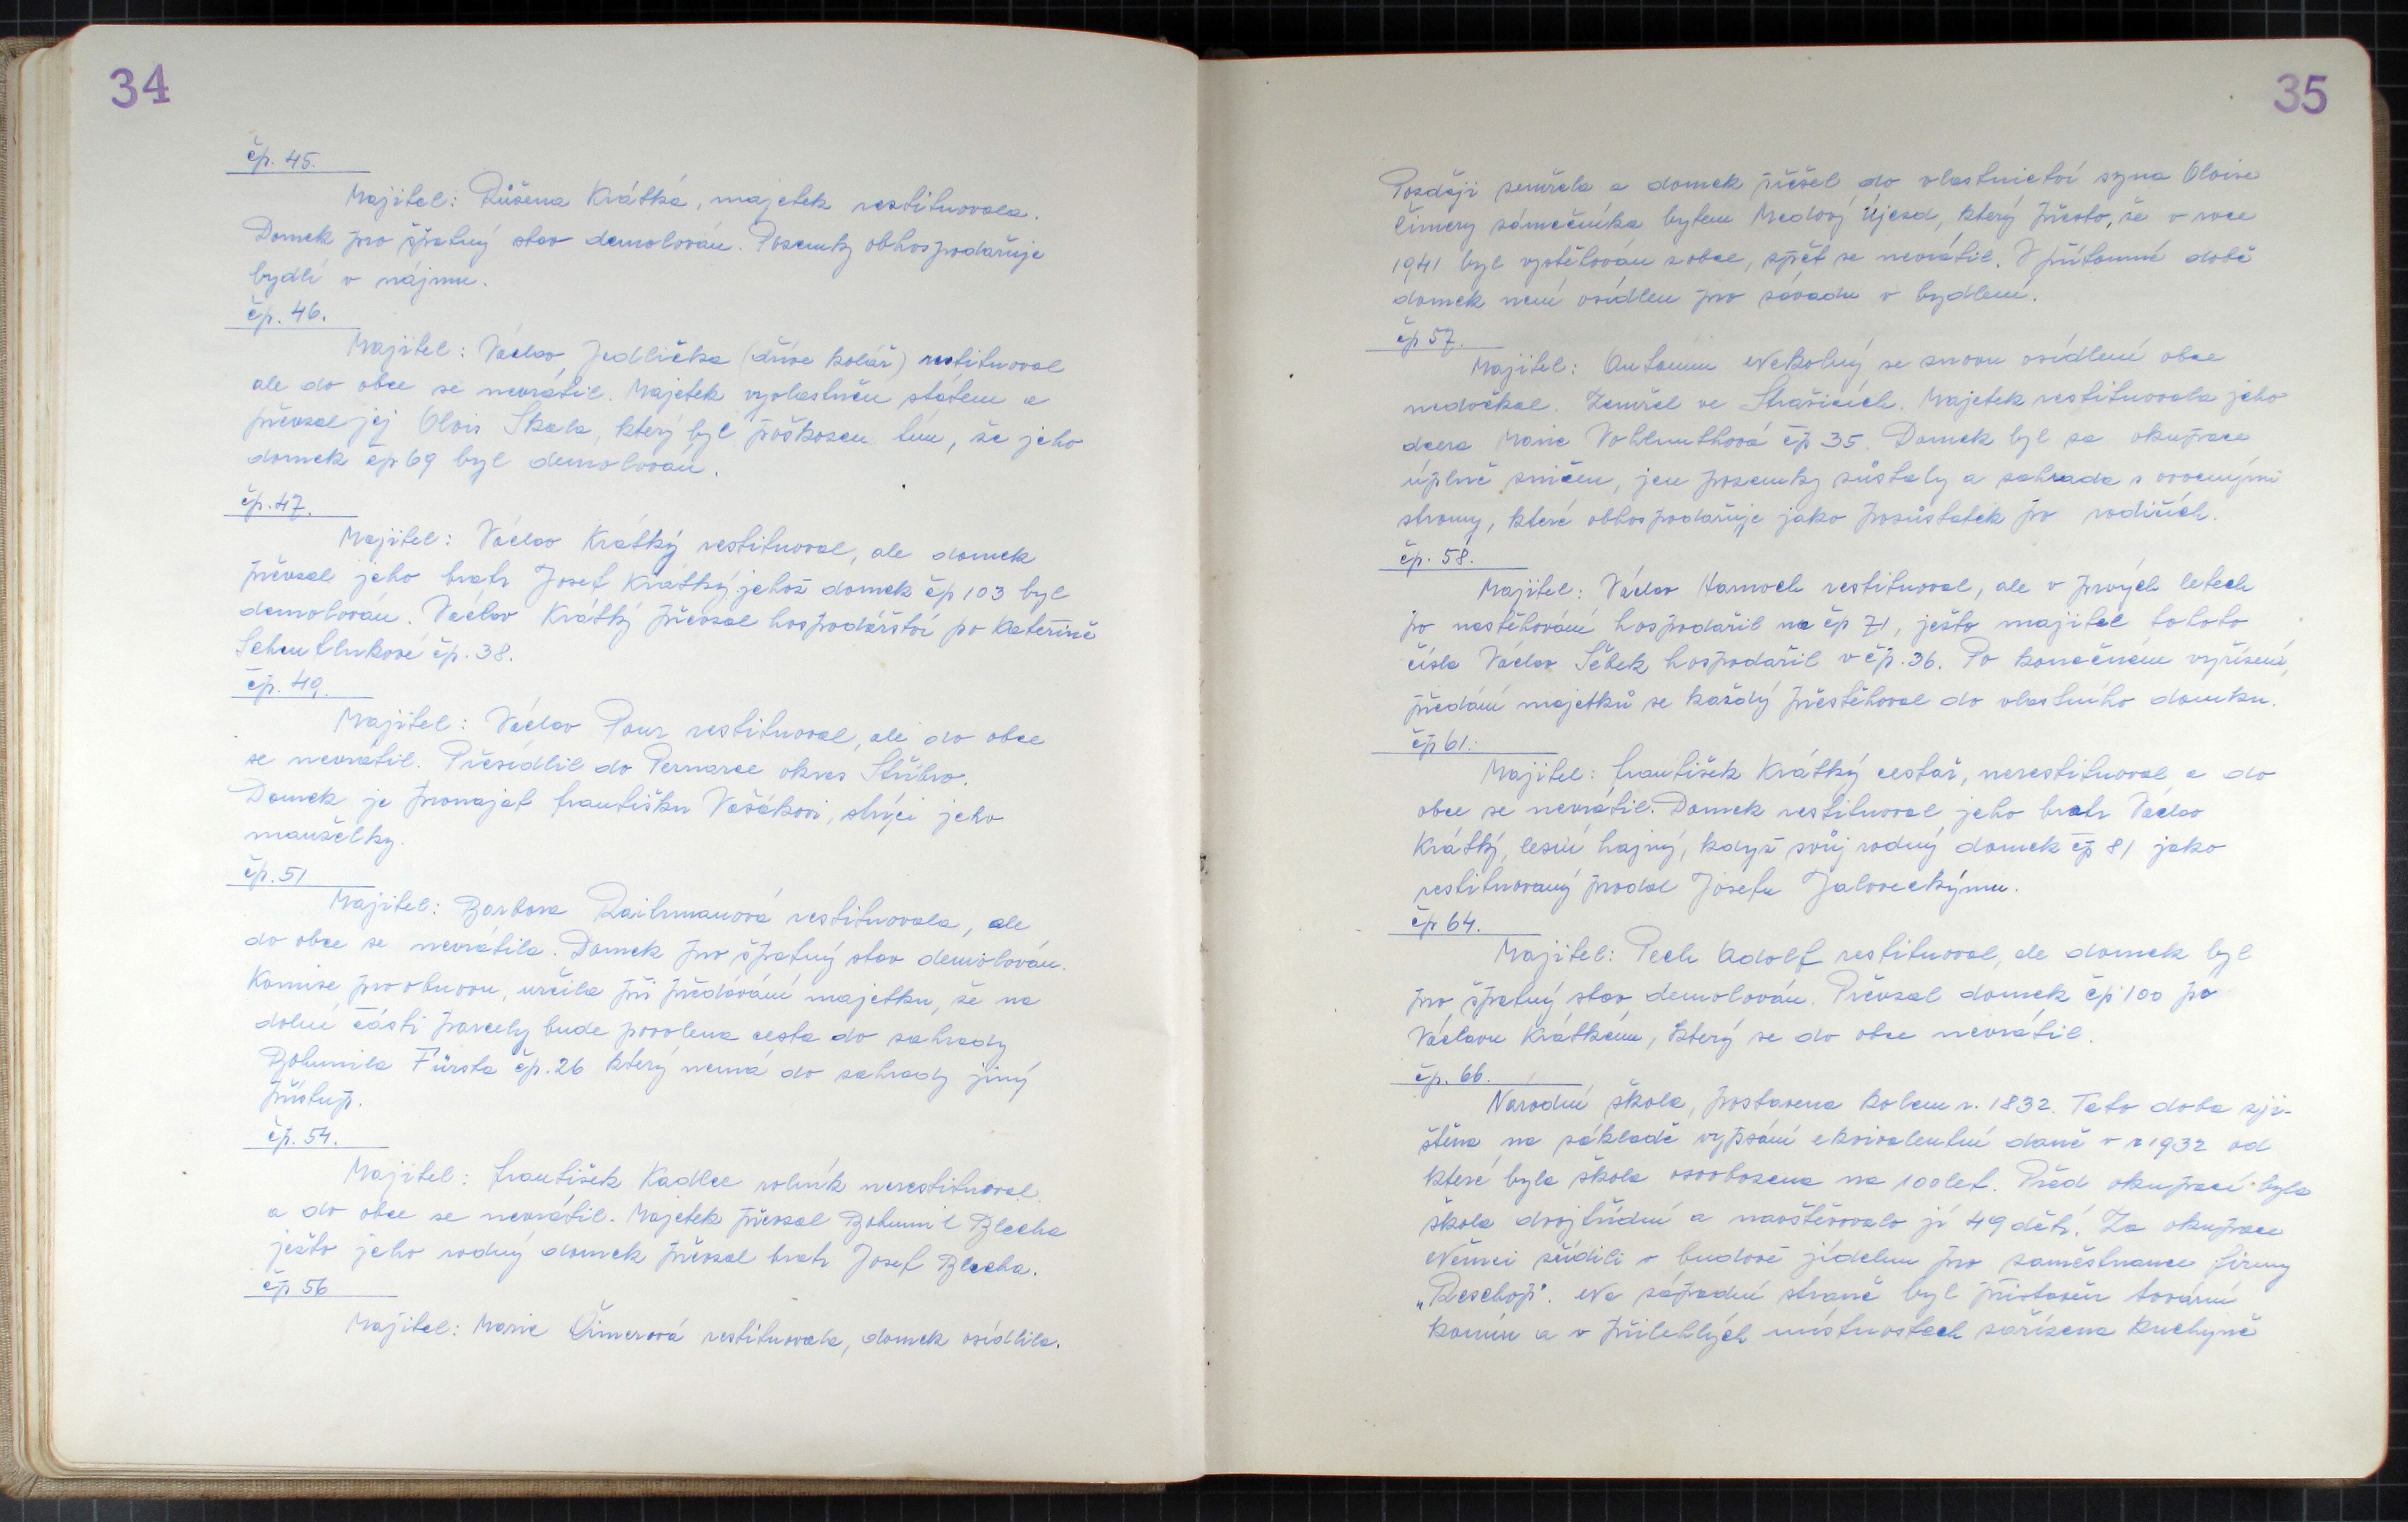 34
čp. 45.
Majitel: Růšena Krátká, majetek restituovala.
Domek pro špatný stav demolován. Pozemky obhospodařuje
bydlí v nájmu.
čp. 46.
Majitel: Václav Jedlička (dříve kolář) restituoval
ale do obce se nevrátil. Majetek vyvlastněn státem a
převzal jej Alois Skala, který byl poškozen tím, že jeho
domek čp 69 byl demolován.
čp. 47.
Majitel: Václav Krátký restituoval, ale domek
převzal jeho bratr Josef Krátký, jehož domek čp 103 byl
demolován. Václav Krátký převzal hospodářství po Kateřině
čp. 38.
čp. 49.
Majitel: Václav Pour restituoval, ale do obce
se nevrátil. Přesídlil do Pernarce okres Stříbro.
Domek je pronajat Františku Vašákovi, strýci jeho
manželky.
čp. 51
Majitel: Barbora Raitrmanová restituovala, ale
do obce se nevrátila. Domek pro špatný stav demolován.
Komise pro obnovu, určila při předávání majetku, že na
dolní části parcely bude povolena cesta do zahrady
Bohumila Fürsta čp. 26 který nemá do zahrady jiný
přístup.
čp. 54.
Majitel: František Kadlec rolník nerestituoval
a do obce se nevrátil. Majetek převzal Bohumil Blecha
ježto jeho rodný domek převzal bratr Josef Blecha.
čp 56
Majitel: Marie Čimerová restituovala, domek osídlila.
35
Později zemřela a domek přešel do vlastnictví syna Aloise
Čimery zámečníka bytem Medový Újezd, který přesto, že v roce
1941 byl vystěhován z obce, zpět se nevrátil. V přítomné době
domek není osídlen pro závadu v bydlení.
čp 57.
Majitel: Antonín Nekolný se znovu osídlení obce
nedočkal. Zemřel ve Strašicích. Majetek restituovala jeho
dcera Marie Vohlmuthová čp 35. Domek byl za okupace
úplně zničen, jen pozemky zůstaly a zahrada s ovocnými
stromy, které obhospodařuje jako pozůstatek po rodičích.
čp. 58.
Majitel: Václav Hamoch restituoval, ale v prvých letech
po nastěhování hospodařil na čp 71, ježto majitel tohoto
čísla Václav Sebek hospodařil v čp. 36. Po konečném vyřízení,
předání majetků se každý přestěhoval do vlastního domku.
čp 61.
Majitel: František Krátký cestář, nerestituoval a do
obce se nevrátil. Domek restituoval jeho bratr Václav
Krátký, lesní hajný, když svůj rodný domek čp 81 jako
restituovaný prodal Josefu Jaloveckýmu.
čp 64.
Majitel: Pech Adolf restituoval, ale domek byl
pro špatný stav demolován. Převzal domek čp 100 po
Václavu Krátkém, který se do obce nevrátil.
čp. 66.
Národní škola, postavena kolem r. 1832. Tato doba zji-
štěna na základě vypsání ekvivalentní daně v r 1932 od
které byla škola osvobozena na 100 let. Před okupací byla
škola dvojtřídní a navštěvovalo ji 49 dětí. Za okupace
Němci zřídili v budově jídelnu pro zaměstnance firmy
„Reschop". Na západní straně byl přistavěn tovární
komín a v přilehlých místnostech zařízena kuchyně